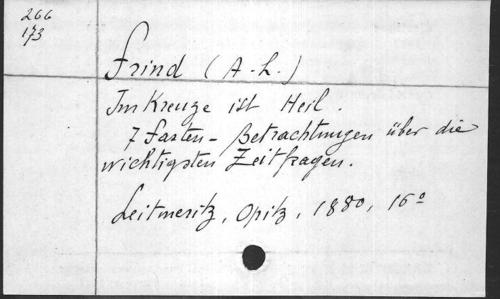 266
173
Frind (A. L.)
Im Kreuze ist Heil.
7 Fasten-Betrachtungen über die
wichtigsten Zeitfragen.
Leitmeritz, Opitz, 1880, 16º